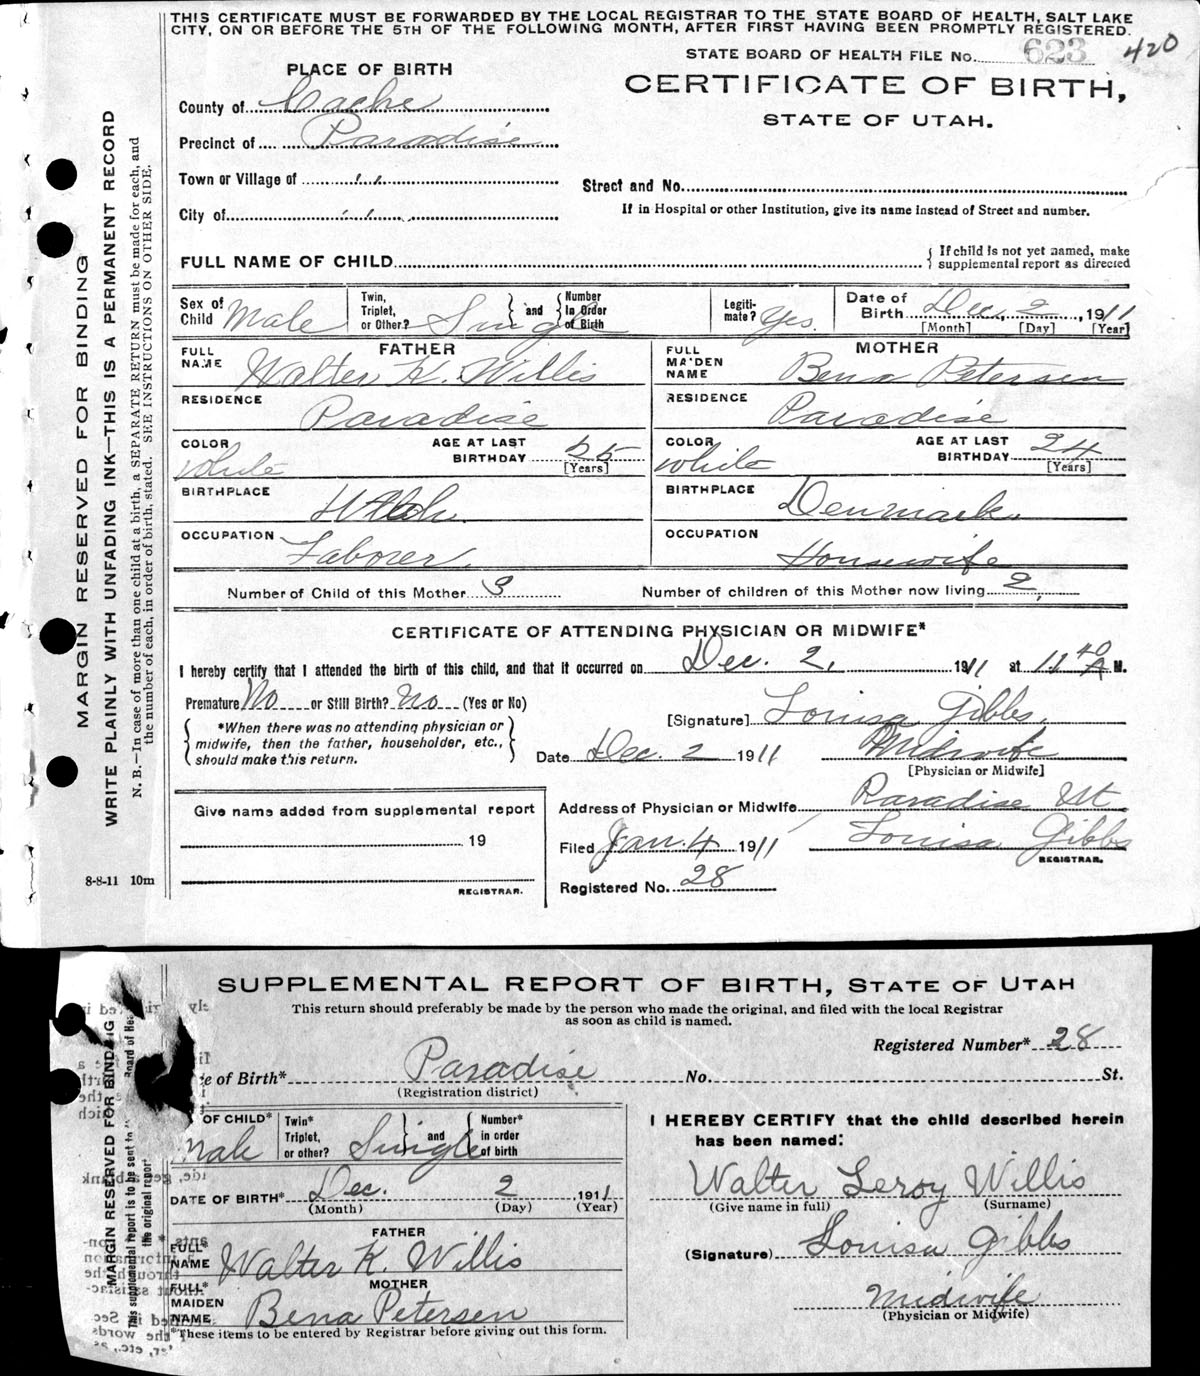 THIS CERTIFICATE MUST BE FORWARDED BY THE LOCAL REGISTRAR TO THE STATE BOARD OF HEALTH, SALT LAKE
CITY, ON OR BEFORE THE 5TH OF THE FOLLOWING MONTH, AFTER FIRST HAVING BEEN PROMPTLY REGISTERED.
STATE BOARD OF HEALTH FILE No. 623 420
PLACE OF BIRTH
CERTIFICATE OF BIRTH,
STATE OF UTAH.
County of Cache
Precinct of Paradise
Town or Village of " "
Street and No.
City of " "
If in Hospital or other Institution, give its name instead of Street and number.
FULL NAME OF CHILD
If child is not yet named, make
supplemental report as directed
Sex of Child Male
Twin, Triplet, or Other? Single and Number In Order of Birth
Legiti-mate? Yes.
Date of Birth Dec. 2, 1911
[Month] [Day] [Year]
FATHER
FULL NAME Walter K. Willis
MOTHER
FULL MAIDEN NAME Bena Petersen
RESIDENCE Paradise
RESIDENCE Paradise
COLOR White
AGE AT LAST BIRTHDAY 25
[Years]
COLOR White
AGE AT LAST BIRTHDAY 24
[Years]
BIRTHPLACE
BIRTHPLACE Denmark.
OCCUPATION Laborer.
OCCUPATION Housewife
Number of Child of this Mother 3
Number of children of this Mother now living 2,
CERTIFICATE OF ATTENDING PHYSICIAN OR MIDWIFE*
I hereby certify that I attended the birth of this child, and that it occurred on Dec. 2, 1911 at 11 40 A M.
Premature No or Still Birth? No (Yes or No)
[Signature] Louisa Gibbs.
*When there was no attending physician or
midwife, then the father, householder, etc.,
should make this return.
Date Dec. 2 1911 Midwife
[Physician or Midwife]
Give name added from supplemental report
19
REGISTRAR.
Address of Physician or Midwife Paradise Ut
Filed Jan. 4 1911 Louisa Gibbs
REGISTRAR.
Registered No. 28
8-8-11 10m
MARGIN RESERVED FOR BINDING
WRITE PLAINLY WITH UNFADING INK—THIS IS A PERMANENT RECORD
N. B.—In case of more than one child at a birth, a SEPARATE RETURN must be made for each, and
the number of each, in order of birth, stated. SEE INSTRUCTIONS ON OTHER SIDE.
SUPPLEMENTAL REPORT OF BIRTH, STATE OF UTAH
This return should preferably be made by the person who made the original, and filed with the local Registrar
as soon as child is named.
Registered Number* 28
e of Birth* Paradise No. St.
(Registration district)
OF CHILD* Male
Twin* Triplet, or other? Single and Number* in order of birth
I HEREBY CERTIFY that the child described herein
has been named:
Walter Leroy Willis
(Give name in full) (Surname)
DATE OF BIRTH* Dec. 2 1911
(Month) (Day) (Year)
FATHER
FULL* NAME Walter K. Willis
(Signature) Louisa Gibbs
MOTHER
FULL* MAIDEN NAME Bena Petersen
Midwife
(Physician or Midwife)
*These items to be entered by Registrar before giving out this form.
MARGIN RESERVED FOR BINDING
This supplemental report is to be sent to
Board of Hea
the original report